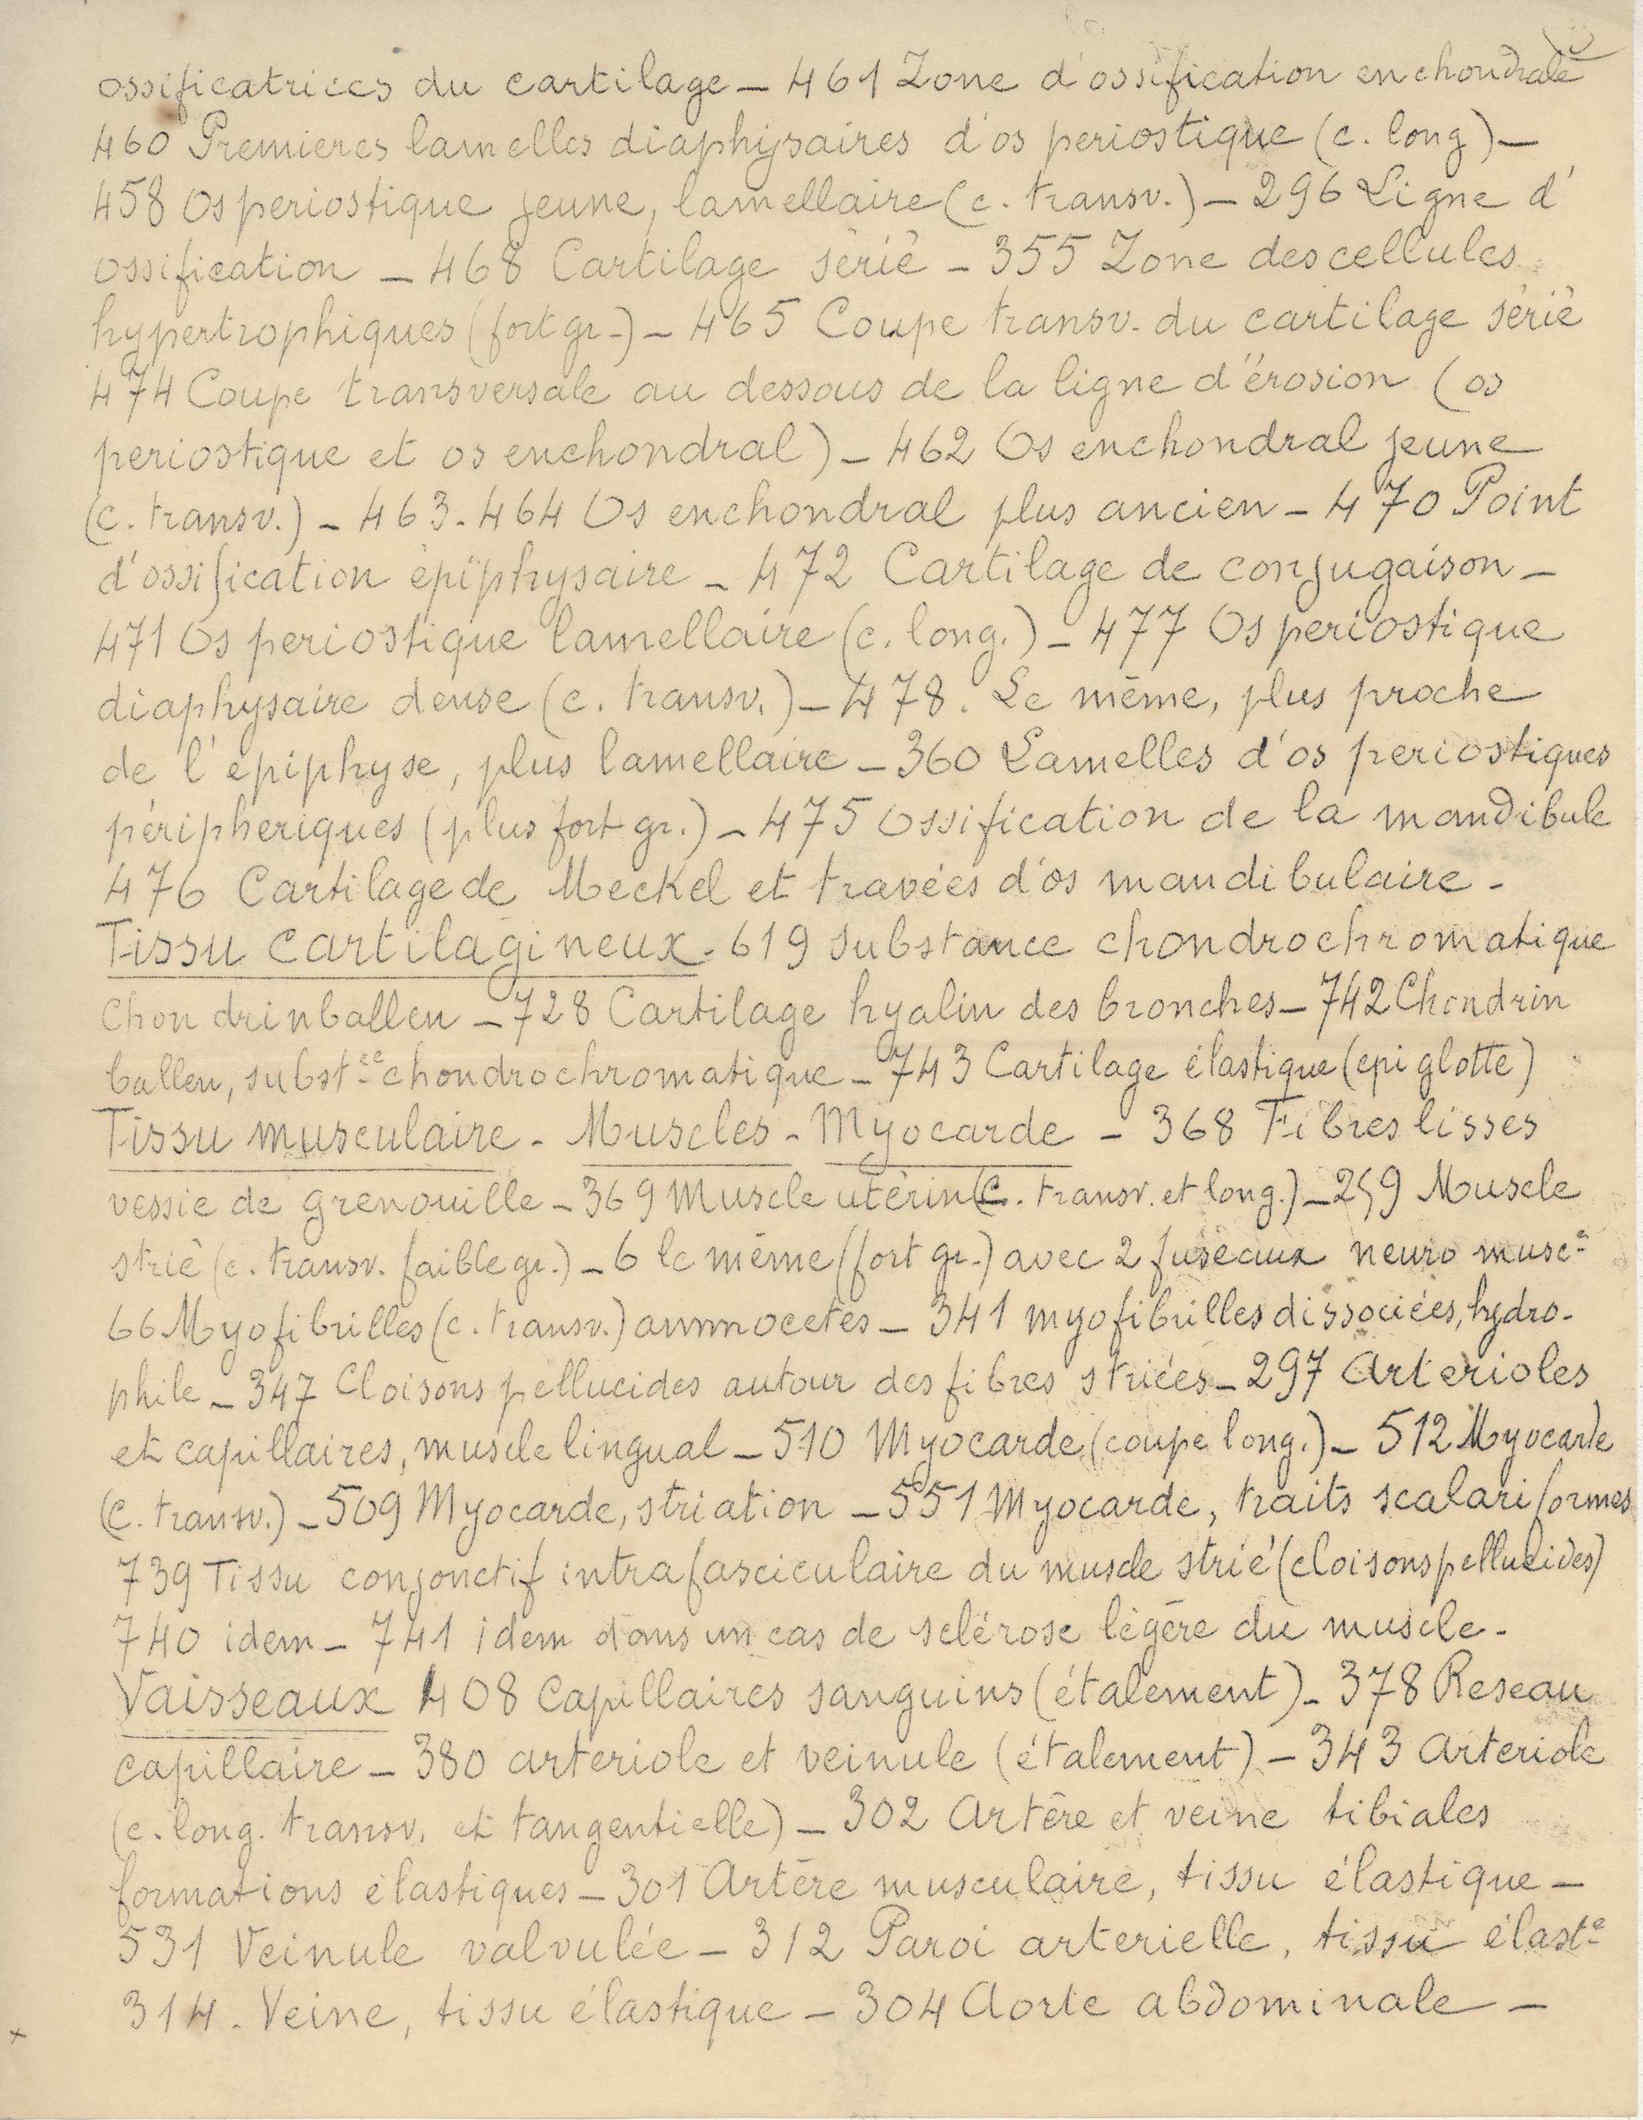 ossificatrices du cartilage – 461 Zone d'ossification enchondrale
460 Premieres lamelles diaphysaires d'os periostique (c. long) –
458 Os periostique jeune, lamellaire (c. transv.) – 296 Ligne d'
ossification – 468 Cartilage sérié – 355 Zone des cellules
hypertrophiques (fort gr.) – 465 Coupe transv. du cartilage sérié
474 Coupe transversale au dessous de la ligne d'érosion (os
periostique et os enchondral) – 462 Os enchondral jeune
(c. transv.) – 463.464 Os enchondral plus ancien – 470 Point
d'ossification épiphysaire – 472 Cartilage de conjugaison –
471 Os periostique lamellaire (c. long.) – 477 Os periostique
diaphysaire dense (c. transv.) – 478. Le même, plus proche
de l'épiphyse, plus lamellaire – 360 Lamelles d'os periostiques
périphériques (plus fort gr.) – 475 Ossification de la mandibule
476 Cartilage de Meckel et travées d'os mandibulaire –
Tissu cartilagineux. 619 substance chondrochromatique
Chondrinballen – 728 Cartilage hyalin des bronches – 742 Chondrin
ballen, subst.ce chondrochromatique – 743 Cartilage élastique (epiglotte)
Tissu musculaire – Muscles – Myocarde – 368 Fibres lisses
vessie de grenouille – 369 Muscle utérin (c. transv. et long.) – 259 Muscle
strié (c. transv. faible gr.) – 6 le même (fort gr.) avec 2 fuseaux neuro musc.s
66 Myofibrilles (c. transv.) ammocetes – 341 myofibrilles dissociées, hydro-
phile – 347 Cloisons pellucides autour des fibres striées – 297 Arterioles
et capillaires, muscle lingual – 510 Myocarde (coupe long.) – 512 Myocarde
(c. transv.) – 509 Myocarde, striation – 551 Myocarde, traits scalariformes
739 Tissu conjonctif intrafasciculaire du muscle strié (cloisons pellucides)
740 idem – 741 idem dans un cas de sclérose légère du muscle –
Vaisseaux 408 Capillaires sanguins (étalement) – 378 Reseau
capillaire – 380 arteriole et veinule (étalement) – 343 Arteriole
(c. long. transv. et tangentielle) – 302 Artère et veine tibiales
formations élastiques – 301 Artère musculaire, tissu élastique –
531 Veinule valvulée – 312 Paroi arterielle, tissu élast.e
314. Veine, tissu élastique – 304 Aorte abdominale –